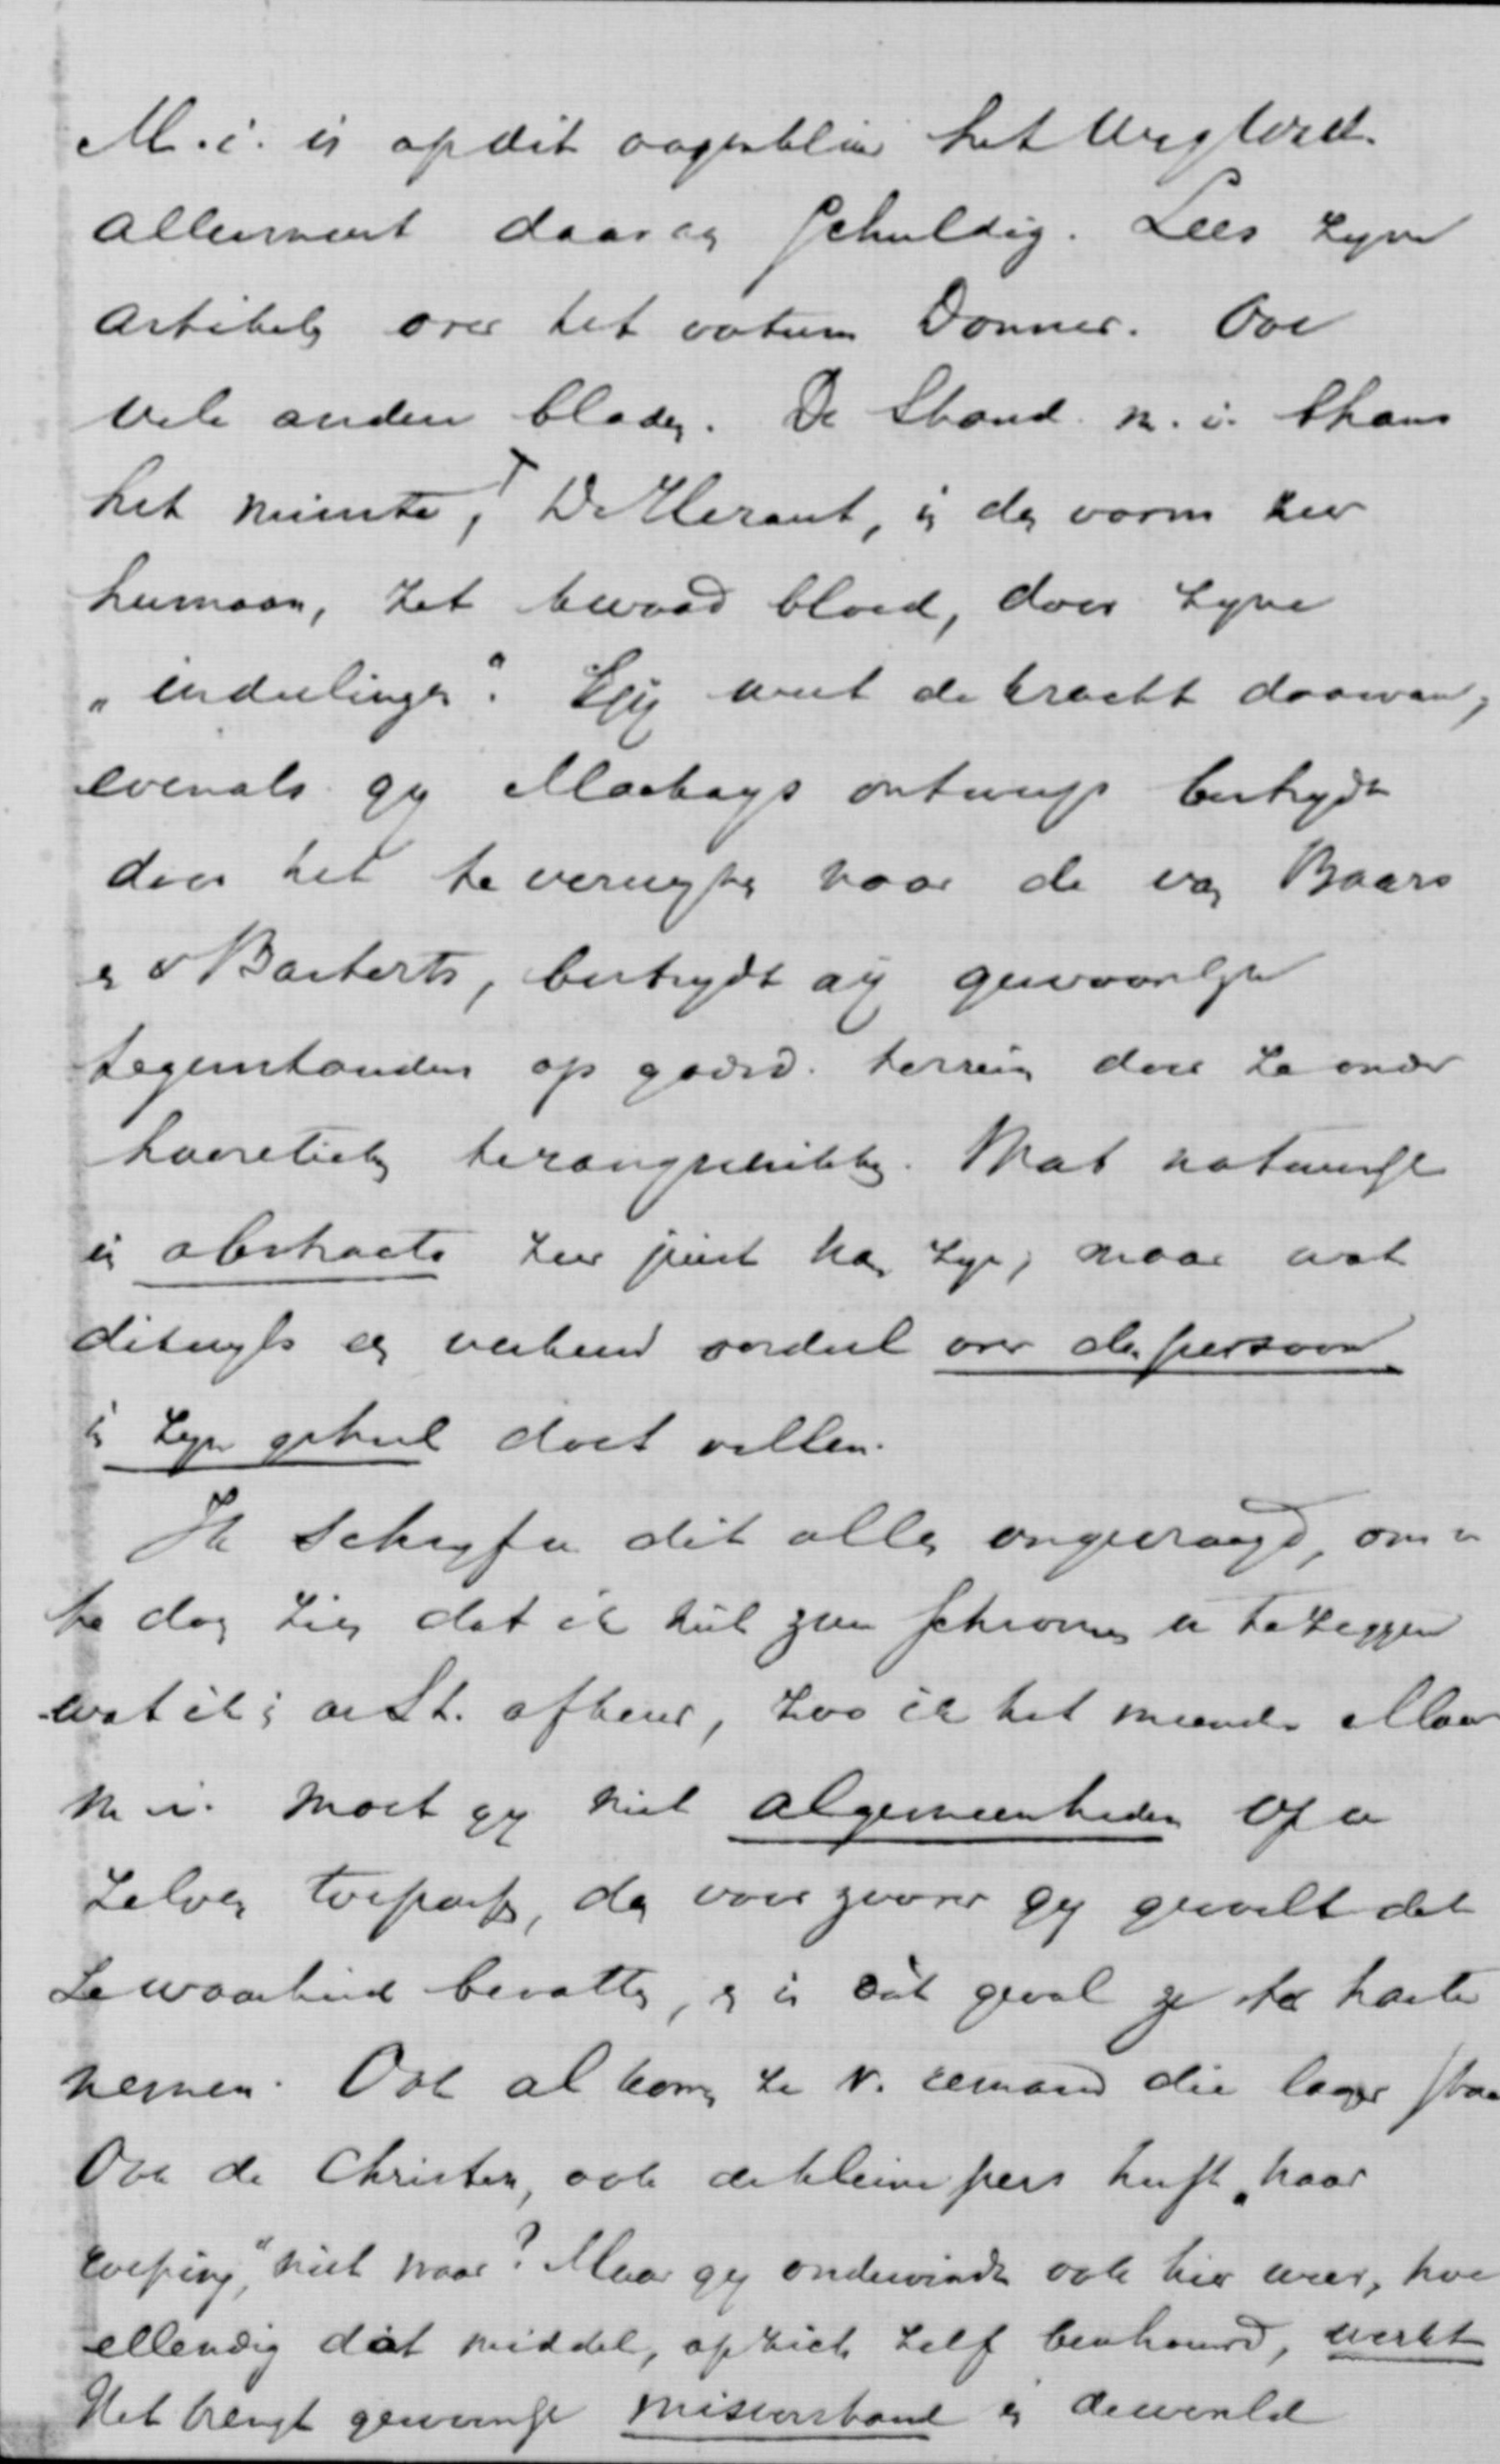 M.i. is op dit oogenblik het
allermeest daaraan schuldig. Lees zyne
artikels over het votum Donner. Ook
vele andere bladen. De Stand. m.i. thans
het minste, De Heraut, in den vorm zeer
humaan, zet kwaad bloed, door zyne
„indeelingen". Gy weet de kracht daarvan,
evenals gy Mackays ontwerp bestrydt
door het te verwyzen naar de van Baars
en v Basterts, bestrydt gy gewoonlyk
tegenstanders op godsd. terrein door ze onder
haeretici te rangschikken. Wat natuurlyk
in abstracto zeer juist kan zyn, maar wat
dikwyls een verkeerd oordeel over den persoon
in zyn geheel doet vellen.
Ik schryf u dit alles ongevraagd, om u
te doen zien dat ik niet zou schromen u te zeggen
wat ik in de St. afkeur, zoo ik het meende Maar
m.i. moet gy niet algemeenheden op u
zelven toepassen, dan voor zoover gy gevoelt dat
ze waarheid bevatten, en in dat geval ze ter harte
nemen. Ook al komen ze v. iemand die lager staat
Ook de Christen, ook de kleine pers heeft „haar
roeping," niet waar? Maar gy ondervindt ook hier weer, hoe
ellendig dat middel, op zich zelf beschouwd, werkt
Het brengt gewoonlyk misverstand in de wereld